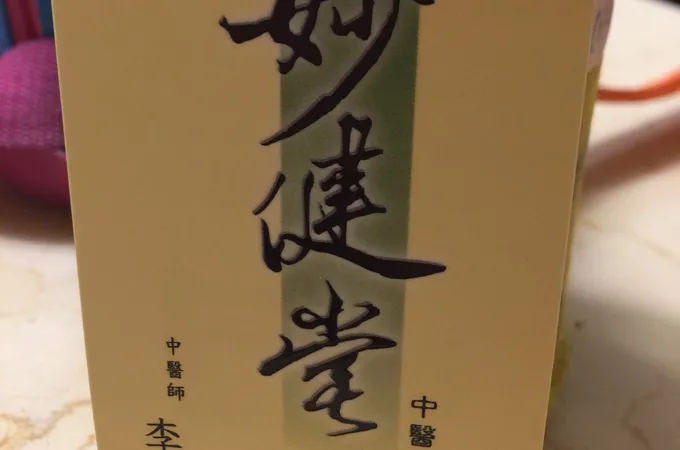 妙健堂
中醫
中醫師
李